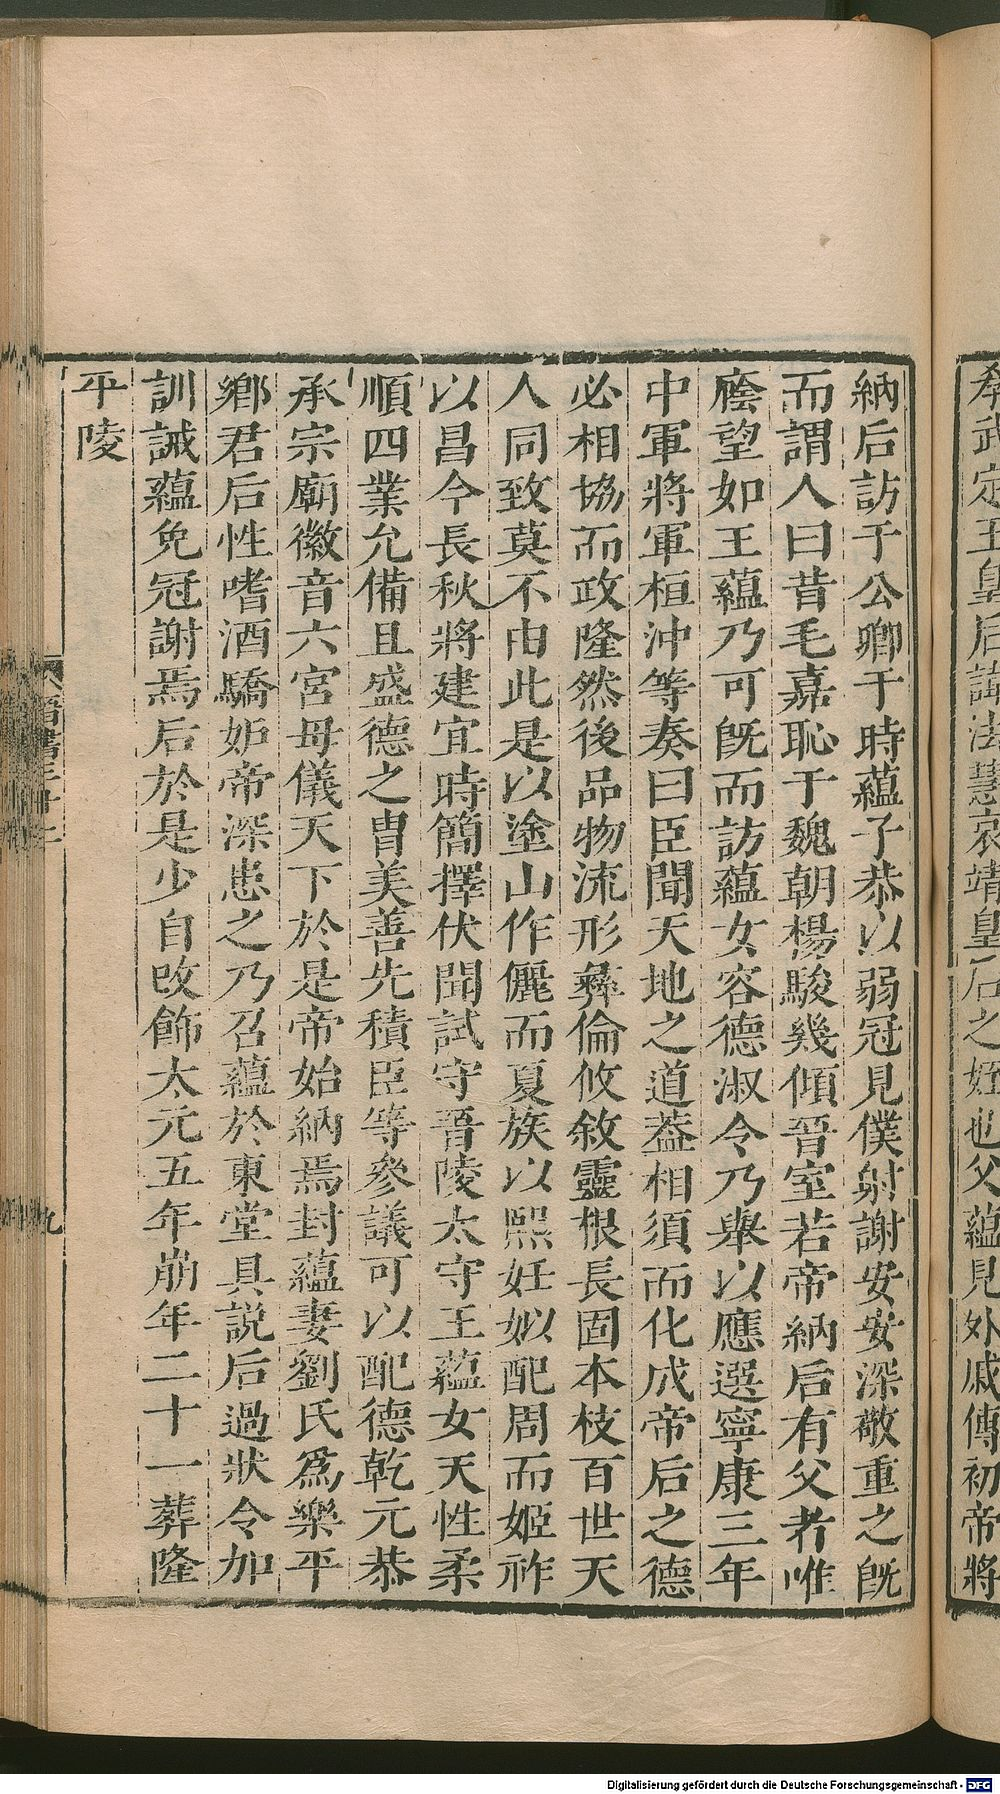 孝武定王皇后諱法慧哀靖皇后之姪也父蘊見外戚傳初帝將
納后訪于公卿于時蘊子恭以弱冠見僕射謝安安深敬重之旣
而謂人曰昔毛嘉恥于魏朝楊駿幾傾晉室若帝納后有父者唯
廕望如王蘊乃可旣而訪蘊女容德淑令乃舉以應選寧康三年
中軍將軍桓沖等奏曰臣聞天地之道葢相須而化成帝后之德
必相協而政隆然後品物流形彝倫攸敘靈根長固本枝百世天
人同致莫不由此是以塗山作儷而夏族以熙妊姒配周而姬祚
以昌今長秋將建宜時簡擇伏聞試守晉陵太守王蘊女天性柔
順四業允備且盛德之胄美善先積臣等參議可以配德乾元恭
承宗廟徽音六宮母儀天下於是帝始納焉封蘊妻劉氏爲樂平
鄉君后性嗜酒驕妒帝深患之乃召蘊於東堂具説后過狀令加
訓誡蘊免冠謝焉后於是少自改飾太元五年崩年二十一葬隆
平陵
九
Digitalisierung gefördert durch die Deutsche Forschungsgemeinschaft - DFG